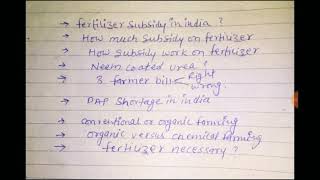 → fertilizer subsidy in india ?
→ How much subsidy on fertilizer
→ How subsidy work on fertilizer
→ Neem coated urea ?
→ 3 farmer bill < Right
wrong.
→ DAP shortage in india
→ conventional or organic farming
→ organic versus chemical farming
→ fertilizer necessary ?